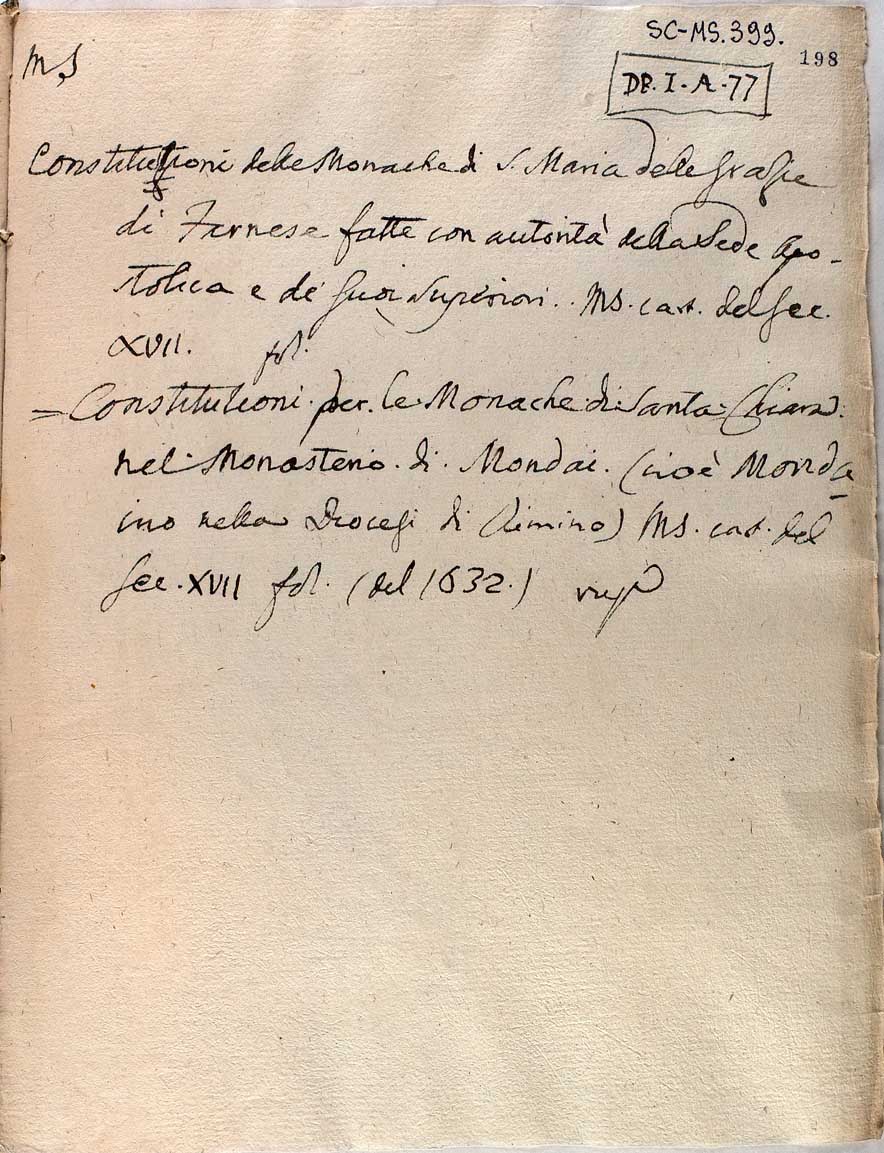 SC-MS. 399.
198
MS
DP. I-A-77
Constitutioni delle Monache di S. Maria delle Grazie
di Farnese fatte con autorità della Sede Apo-
stolica e de' suoi Superiori. MS. cart. del sec.
XVII. fol.
= Constitutioni. per. le. Monache. di. Santa. Chiara.
nel. Monasterio. di. Mondai. (cioè Monda
ino nella Diocesi di Rimino) MS. cart. del
sec. XVII fol. (del 1632.)